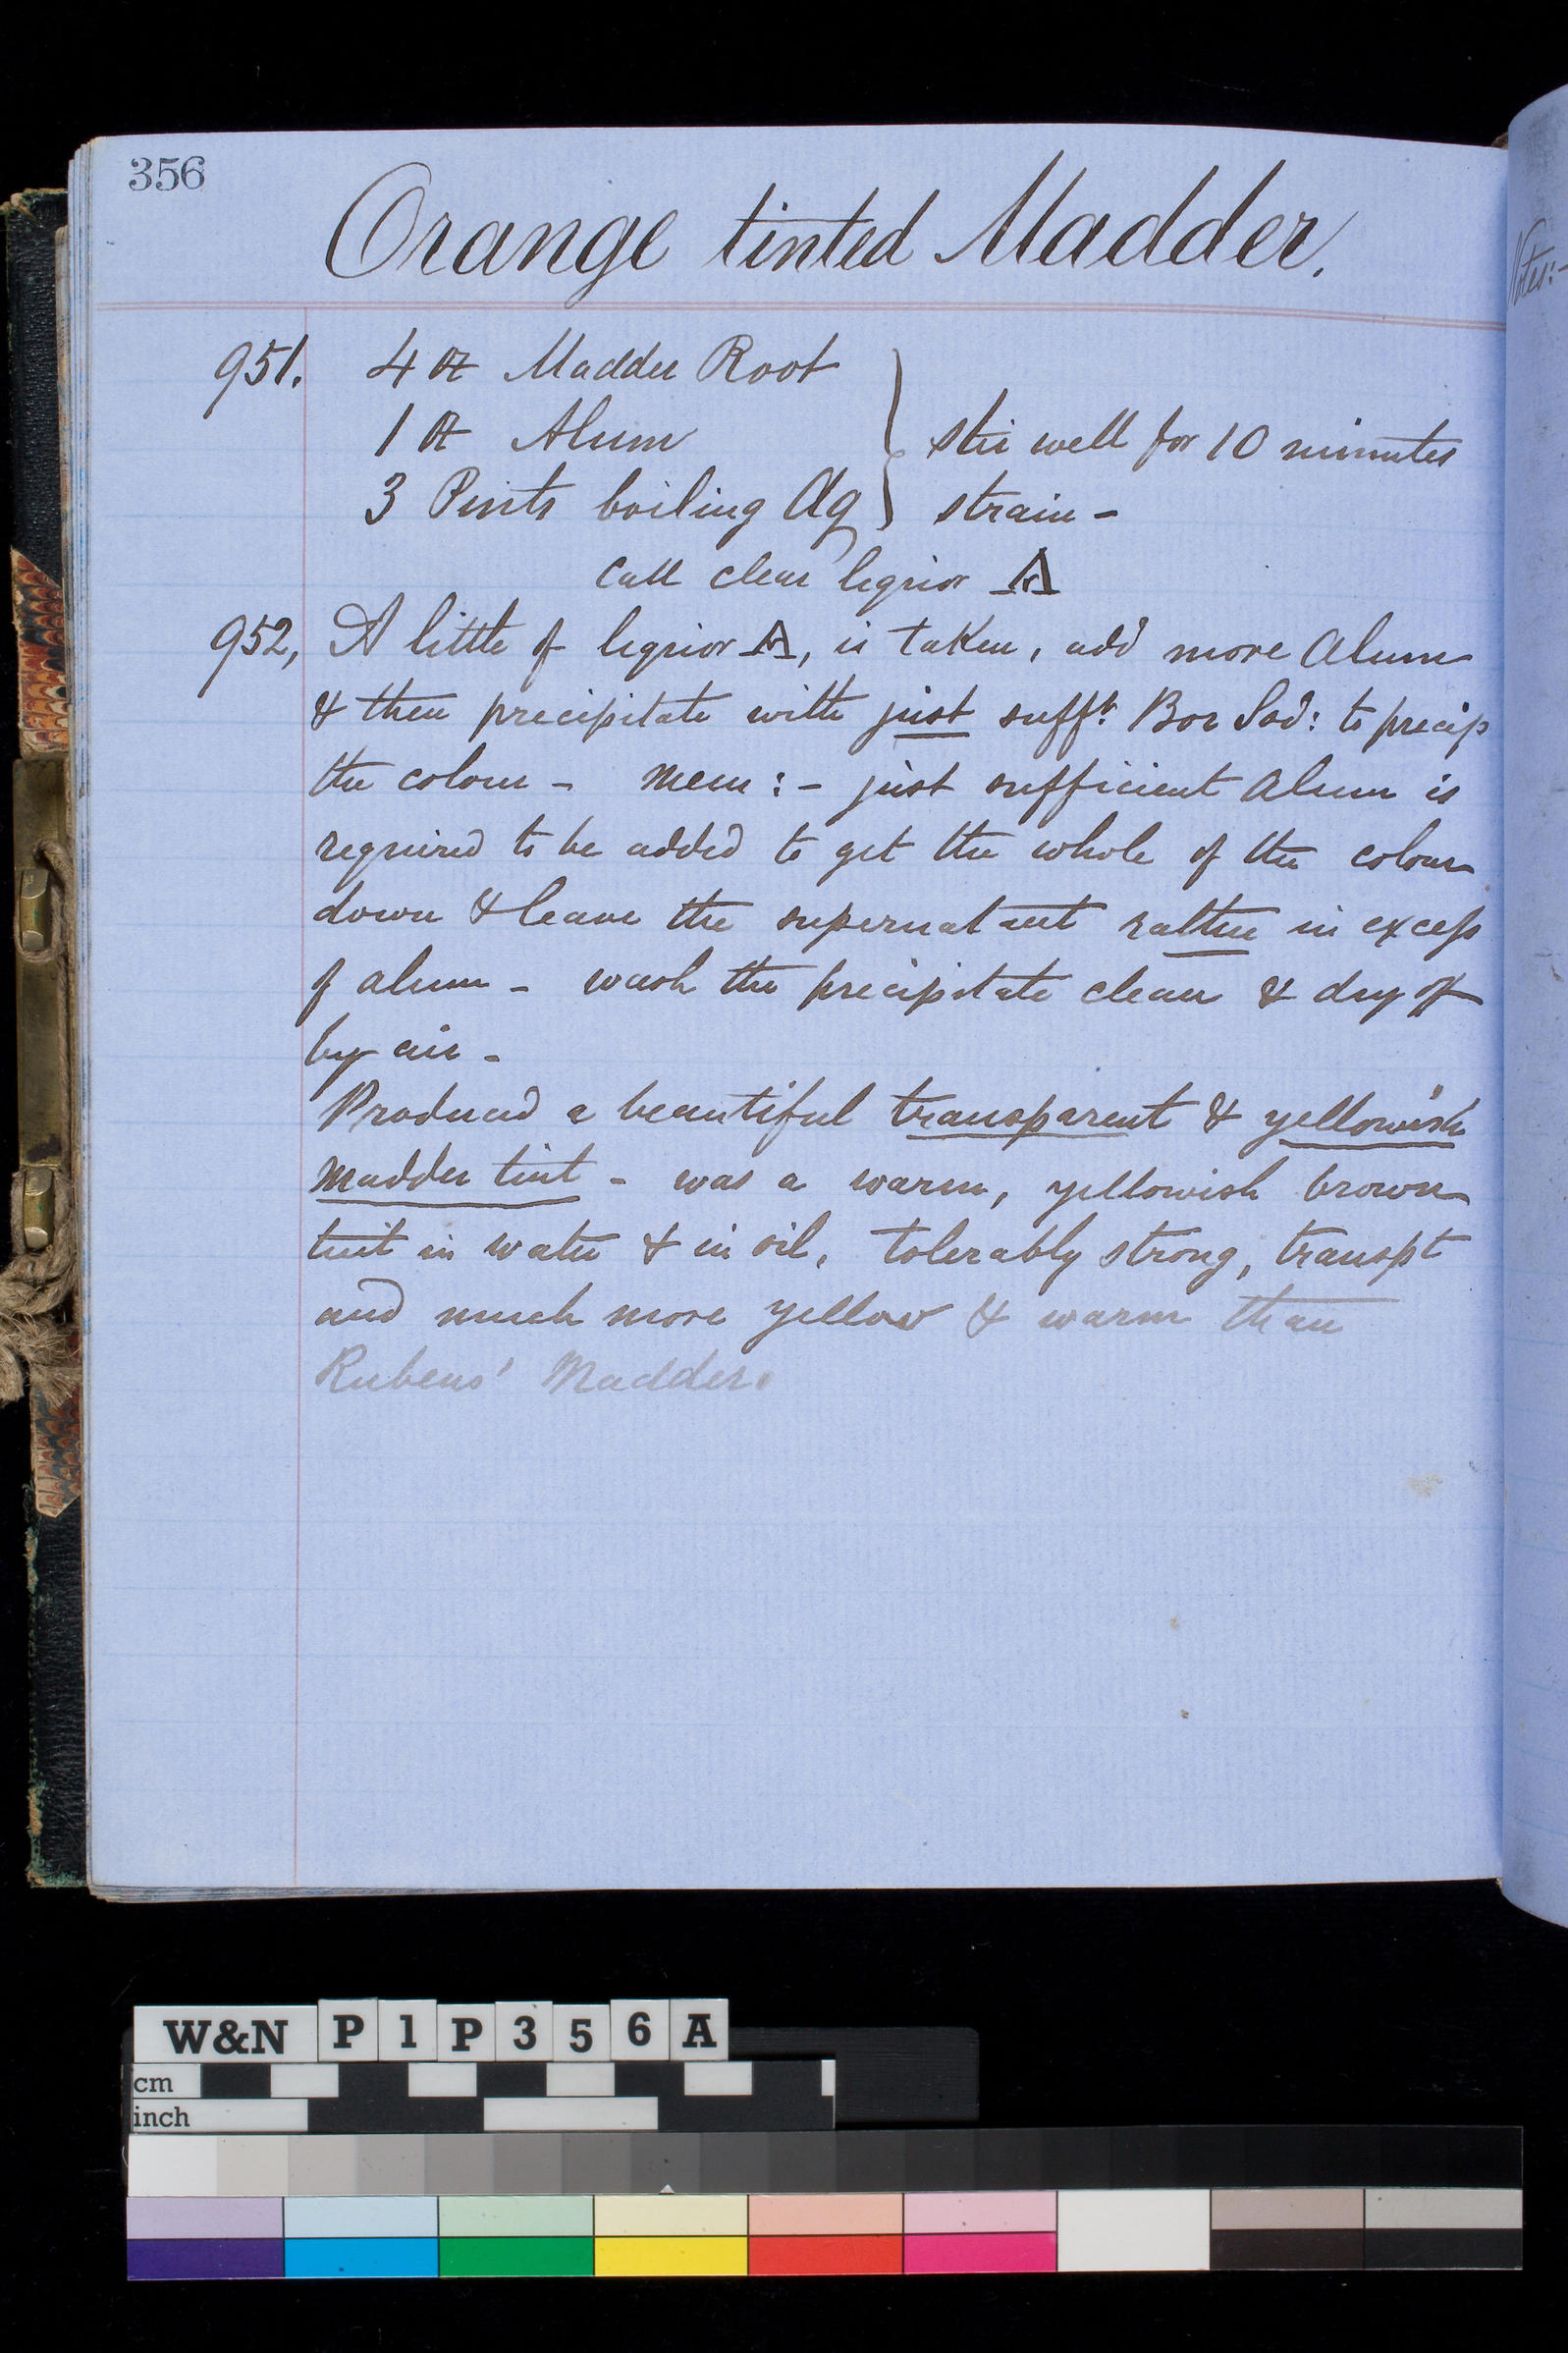 356
Orange tinted Madder.
951. 4 oz Madder Root
1 oz Alum
3 Pints boiling Aq
stir well for 10 minutes
strain -
call clear liquior A
952, A little of liquior A, is taken, add more Alum
& then precipitate with just sufft. Bor Sod: to precip
the colour - Mem: - just sufficient Alum is
required to be added to get the whole of the colour
down & leave the supernatant rather in excess
of alum - wash the precipitate clean & dry off
by air -
Produced a beautiful transparent & yellowish
Madder tint - was a warm, yellowish brown
tint in water & in oil, tolerably strong, transpt
and much more yellow & warm than
Rubens' Madder.
Notes:-
W&N P1P356A
cm
inch